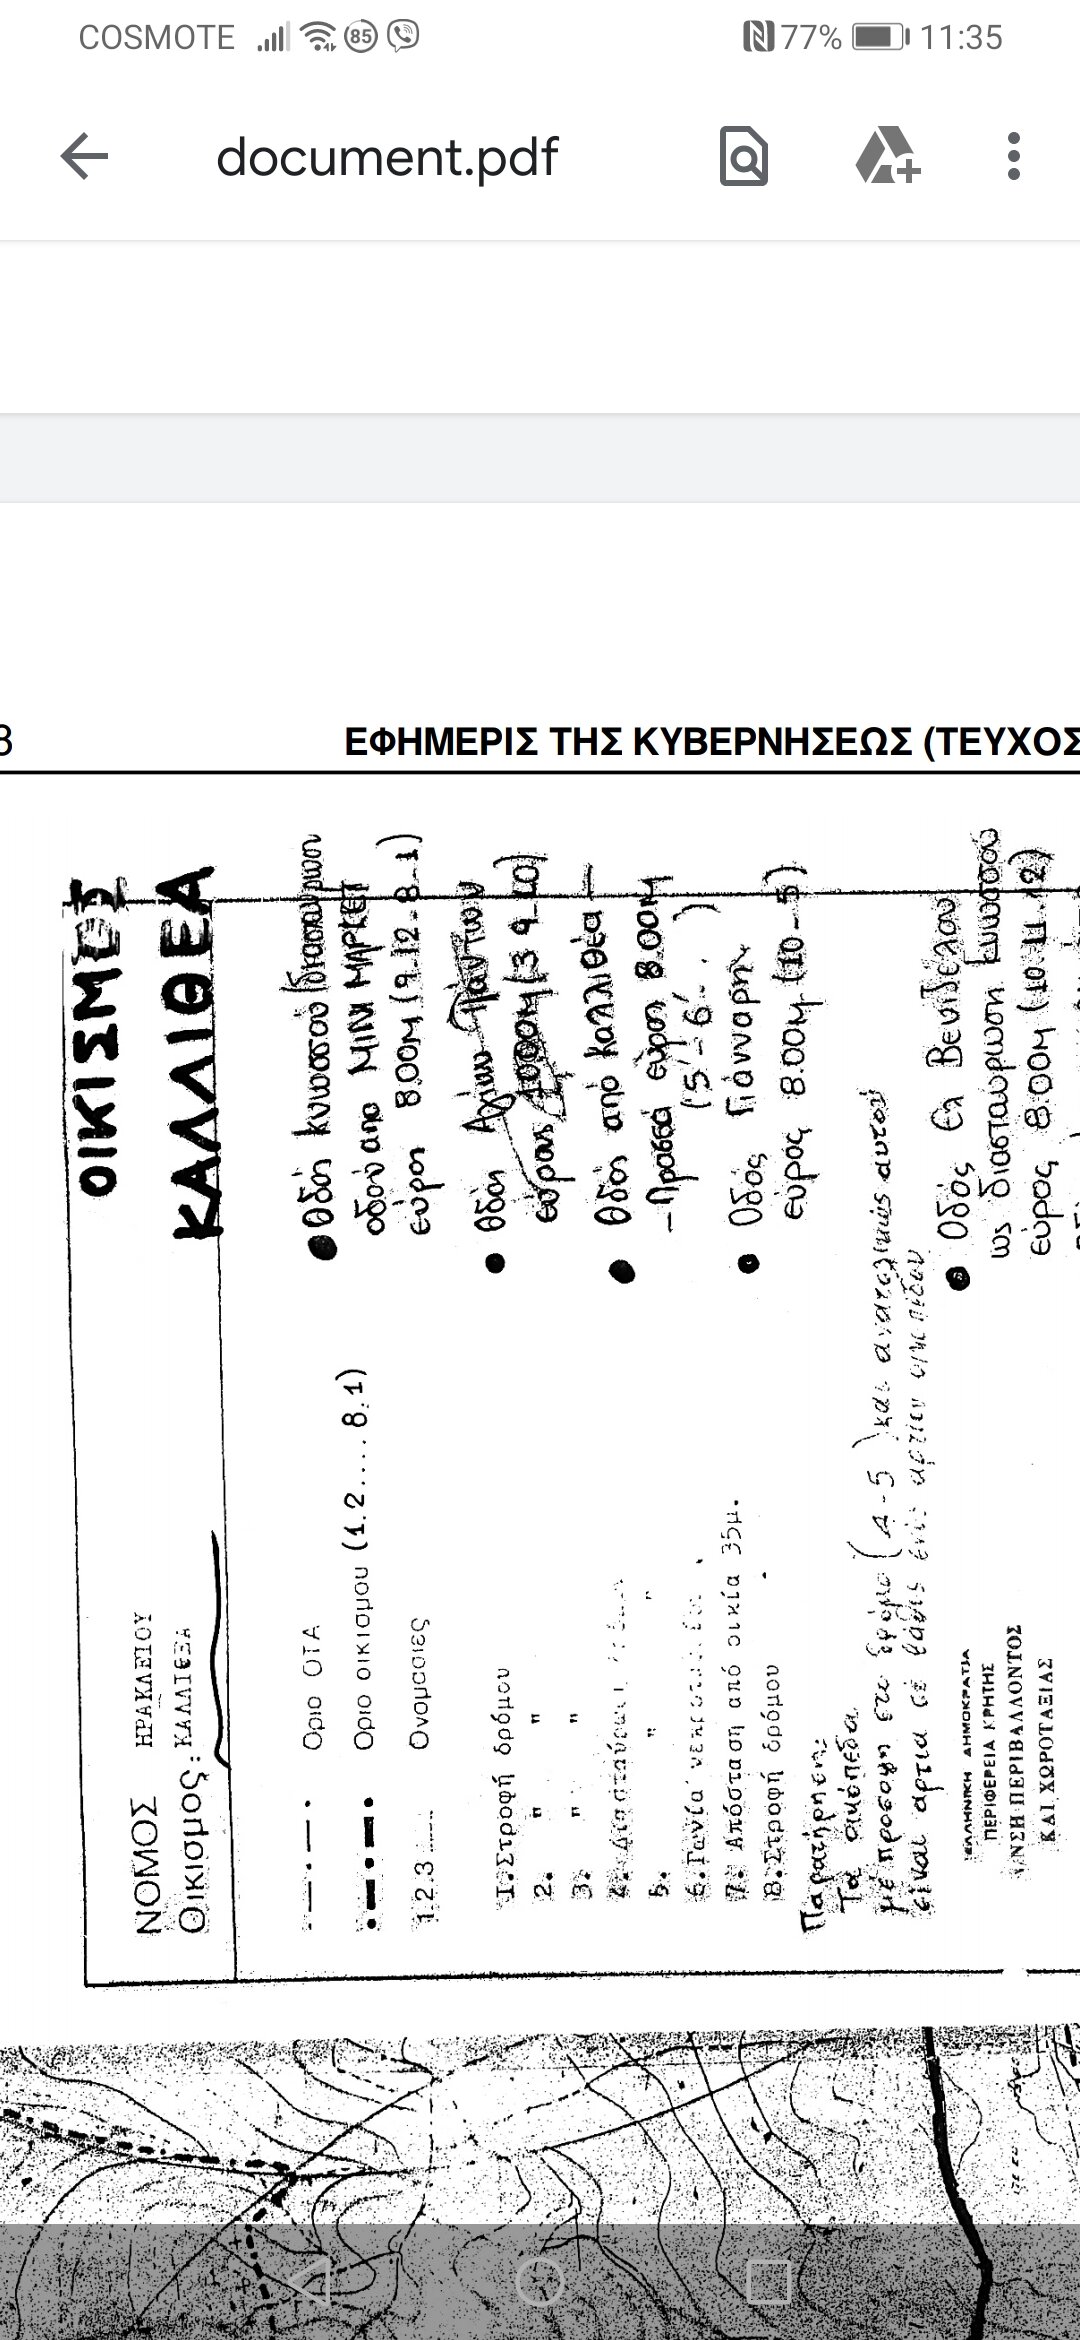 COSMOTE 85 77% 11:35
document.pdf
8
ΕΦΗΜΕΡΙΣ ΤΗΣ ΚΥΒΕΡΝΗΣΕΩΣ (ΤΕΥΧΟΣ
ΟΙΚΙΣΜΕΣ
ΚΑΛΛΙΘΕΑ
ΝΟΜΟΣ ΗΡΑΚΛΕΙΟΥ
Οικισμος: ΚΑΛΛΙΘΕΑ
Οριο ΟΤΑ
Οριο οικισμου (1.2.....8.1)
1.2.3 ...... Ονομασιες
1.Στροφή δρόμου
2. " "
3. " "
4. Διασταύρωση
5. " "
6.Γωνία
7. Απόσταση από οικία 35μ.
8.Στροφή δρόμου
Παρατήρηση:
Τα οικόπεδα
μέ πρόσοψη στο δρόμο (4-5) και ανατολικώς αυτού
είναι αρτια σέ βάθος ενός αρτίου οικοπέδου
• Οδός Κνωσσού (διασταύρωση
οδού απο ΜΙΝΙ ΜΑΡΚΕΤ
εύρος 8.00Μ (9.12.8.1)
• Οδός Αγίων Πάντων
εύρους (3 9 10)
• Οδός από Καλλιθέα
-Πρασσά εύρος 8.00Μ
(5'-6'. )
• Οδός Γιάνναρη
εύρος 8.00Μ (10-5)
• Οδός Ελ Βενιζέλου
ως διασταυρωση Κνωσσού
εύρος 8.00Μ (10.11.12)
ΕΛΛΗΝΙΚΗ ΔΗΜΟΚΡΑΤΙΑ
ΠΕΡΙΦΕΡΕΙΑ ΚΡΗΤΗΣ
ΝΣΗ ΠΕΡΙΒΑΛΛΟΝΤΟΣ
ΚΑΙ ΧΩΡΟΤΑΞΙΑΣ